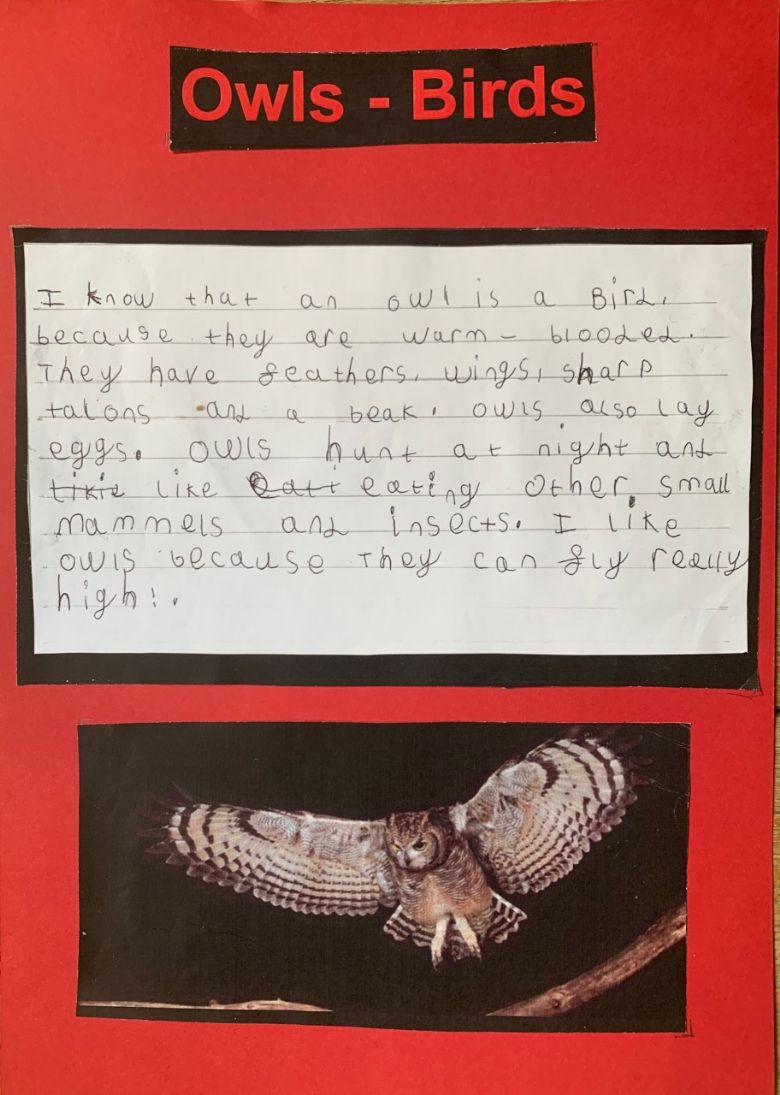 Owls - Birds
I know that an owl is a Bird,
because they are warm-blooded.
They have feathers, wings, sharp
talons and a beak. owls also lay
eggs. owls hunt at night and
like eating other small
mammels and insects. I like
owls because they can fly really
high!.